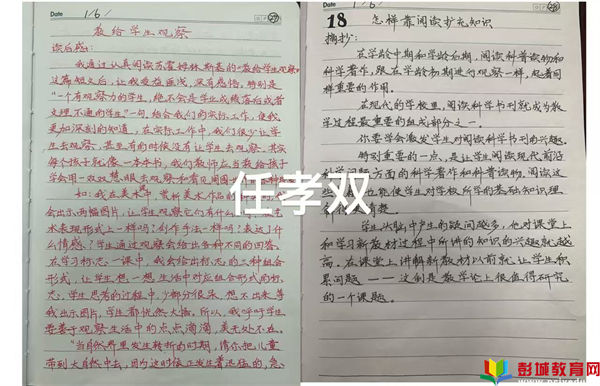 Date 1/6/
教给学生观察
读后感:
我通过认真阅读苏霍姆林斯基的《教给学生观察》
这篇短文后,让我受益匪浅,深有感悟,特别是
"一个有观察力的学生,绝不会是学生成绩落后或者
文理不通的学生"一句,结合我们的实际工作,使我
更加深刻的知道,在实际工作中,我们很少让学
生去观察,甚至有的时候没有让学生去观察,其实
每个孩子就像一本本书,我们教师应当教给孩子
学会用一双慧眼去观察和看见周围
如:我在美术课,赏析美术作品
会出示两幅图片,让学生观察它们有什么
术表现形式上一样吗?创作手法一样吗?表达了什
么情感?学生通过观察会给出各种不同的回答。
在学习标志一课中,我会给出标志的三种组合
形式,让学生想一想生活中对应组合形式的标
志,学生思考的过程中,少部分很呆,想不出来,等
我出示图片,学生都恍然大悟。所以,我呼吁学生
要善于观察生活中的点点滴滴,美无处不在。
"当自然界里发生转折的时期,请你把儿童
带到大自然中去,因为这时候正发生着迅猛的、急
Date 1/6/
18 怎样靠阅读扩充知识
摘抄:
在学龄中期和学龄后期,阅读科普读物和
科学著作,跟在学龄初期进行观察一样,起着同
样重要的作用。
在现代的学校里,阅读科学书刊就成为教
学过程最重要的组成部分之一。
你要学会激发学生对阅读科学书刊的兴趣。
特别重要的一点,是让学生阅读现代前沿
科学问题方面的科学著作和科普读物,阅读这
也能使学生对学校所学的基础知识理
学生头脑中产生的疑问越多,他对课堂上
和学习新教材过程中所讲的知识的兴趣就越
高。在课堂上讲解新教材以前就让学生积
累问题——这倒是教学论上很值得研究
的一个课题。
任孝双
彭城教育网